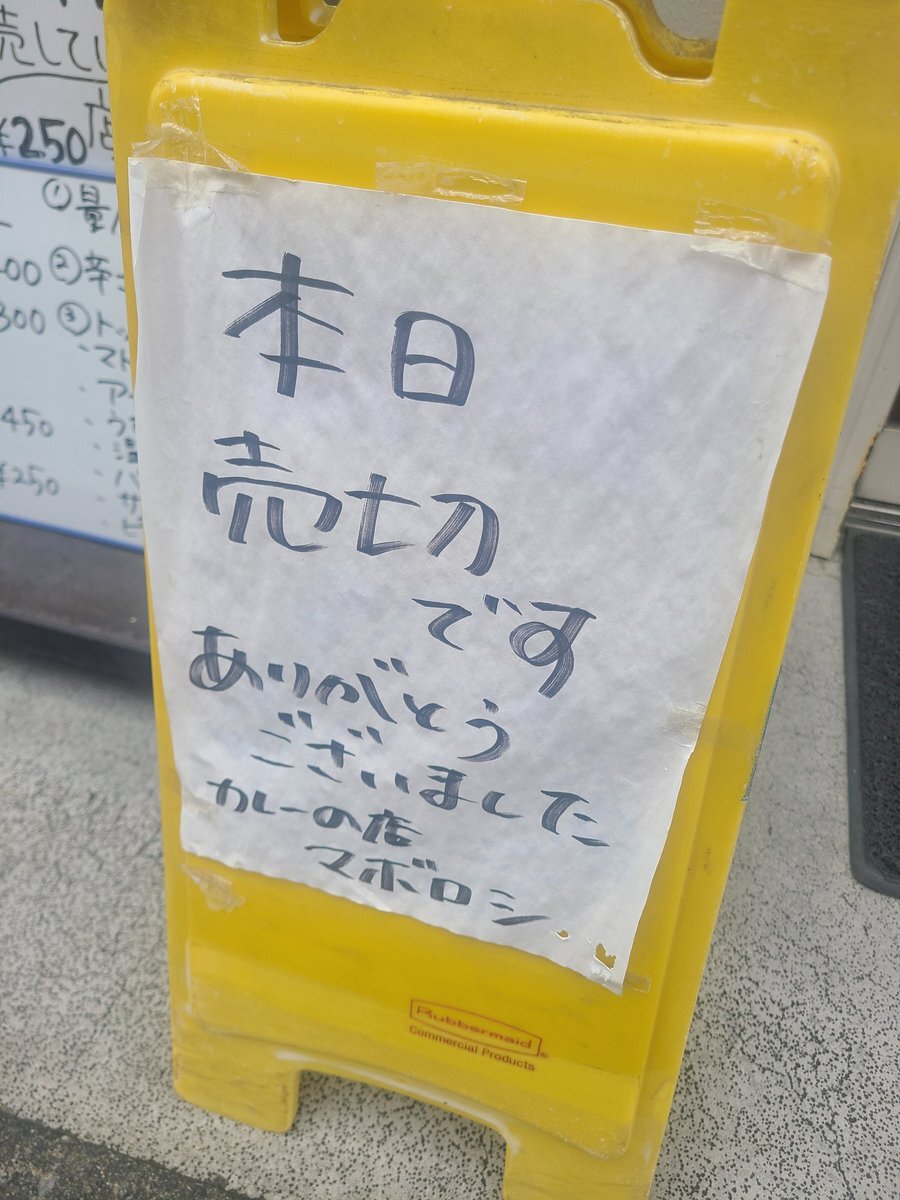 本日
売切
です
ありがとう
ございました
カレーの店
マボロシ
Rubbermaid
Commercial Products
売してい
¥250
①量
00 ②辛さ
300 ③トッ
・マト
・ア
450 ・う
・温
¥250 ・ハ
・サ